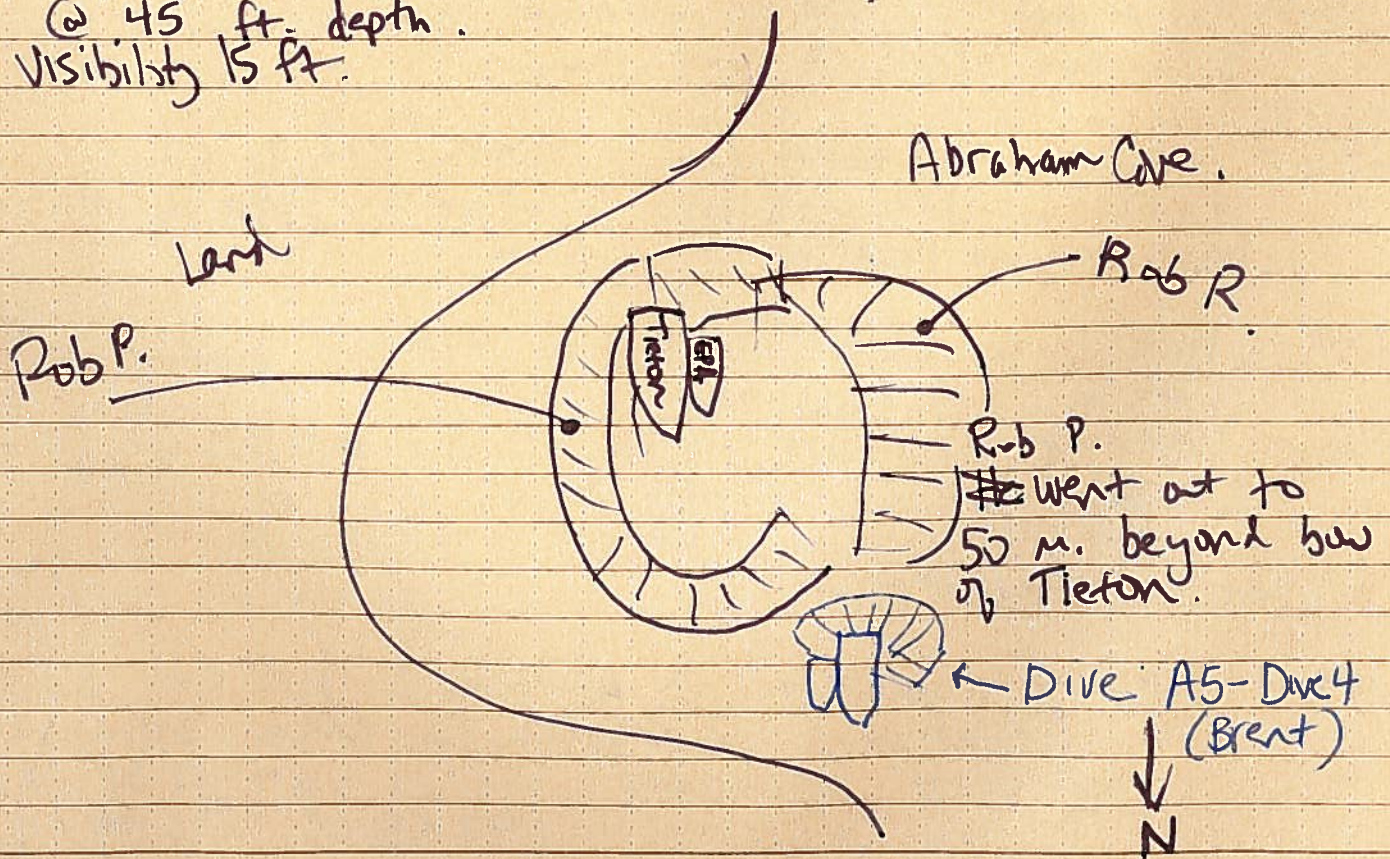 @ 45 ft. depth.
Visibility 15 ft.
Abraham Cove.
Land
Rob R.
Rob P.
Tieton
EPA
Rob P.
went out to
50 m. beyond bow
of Tieton.
Dive A5-Dive4
(Brent)
N